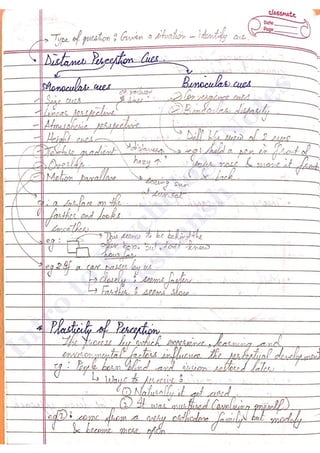 classmate
Date
Page
Type of question : Given a situation - identify cue.
Distance Perception Cues.
Monocular cues
Binocular cues
Size cues
Linear perspective
Atmospheric perspective
Height cues
Texture gradient
Overlap
Motion parallax
Convergence cues
Binocular disparity
Diff the view of 2 eyes
eg: hold a pen in front of
nose & move it front
& back
hazy ↑
seeing sun
at sunset
eg : a surface on the
farther end looks
smoother
eg :
This seems to be behind the
box. but don't know
how far
eg 2 If a car passes by us
↳ Closely : seems faster
↳ Farther : seems slow
* Plasticity of Perception
The process by which experience, learning and
environmental factors influence the perceptual development
eg : People born blind and vision restored later
↳ Ways to perceive :
① Naturally it get used
② It was nurtured
eg ② : come from a very orthodox family but modify
& become more open